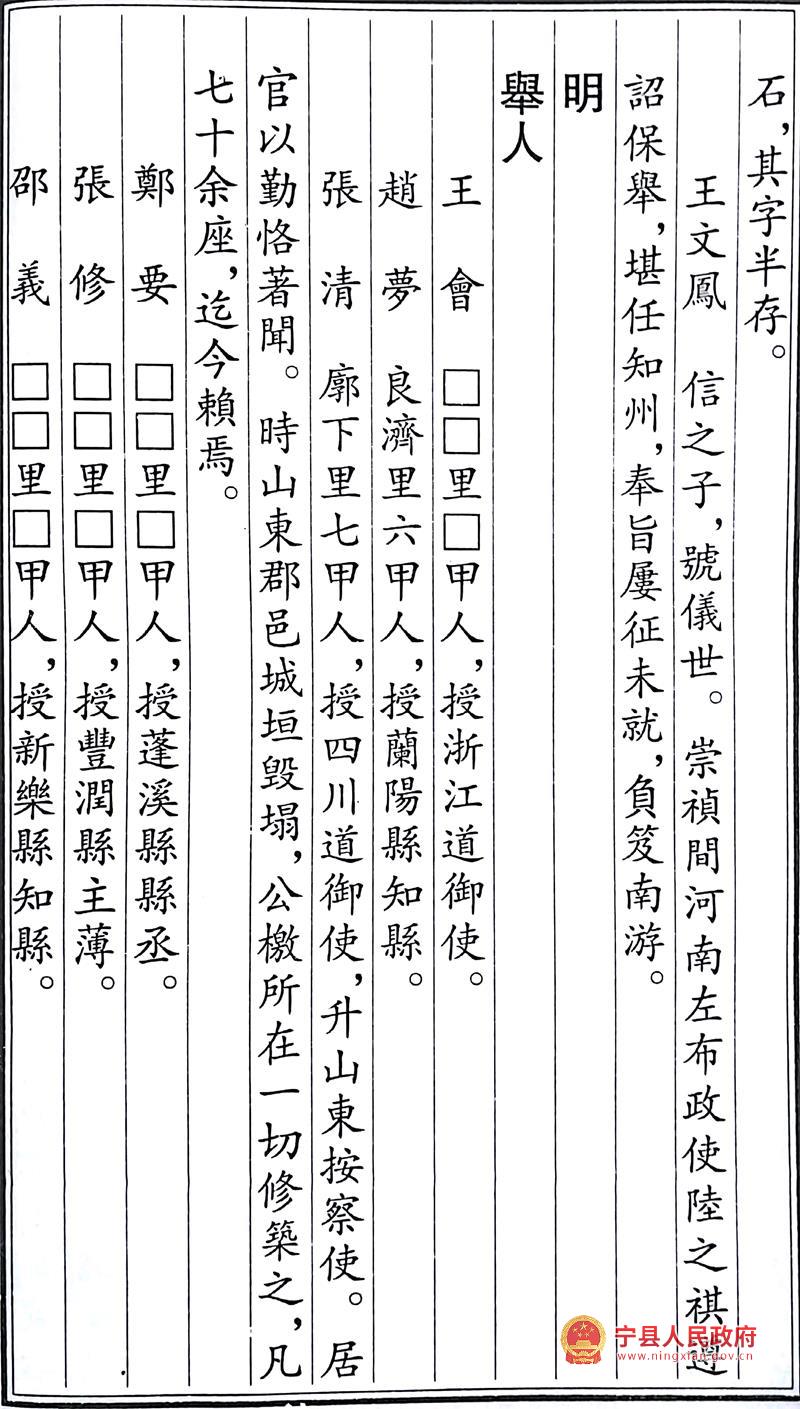 石，其字半存。
王文鳳　信之子，號儀世。崇禎間河南左布政使陸之祺遵
詔保舉，堪任知州，奉旨屢征未就，負笈南游。
明
舉人
王　會　□□里□甲人，授浙江道御使。
趙　夢　良濟里六甲人，授蘭陽縣知縣。
張　清　廓下里七甲人，授四川道御使，升山東按察使。居
官以勤恪著聞。時山東郡邑城垣毀塌，公檄所在一切修築之，凡
七十余座，迄今賴焉。
鄭　要　□□里□甲人，授蓬溪縣縣丞。
張　修　□□里□甲人，授豐潤縣主薄。
邵　義　□□里□甲人，授新樂縣知縣。
宁县人民政府
www.ningxian.gov.cn